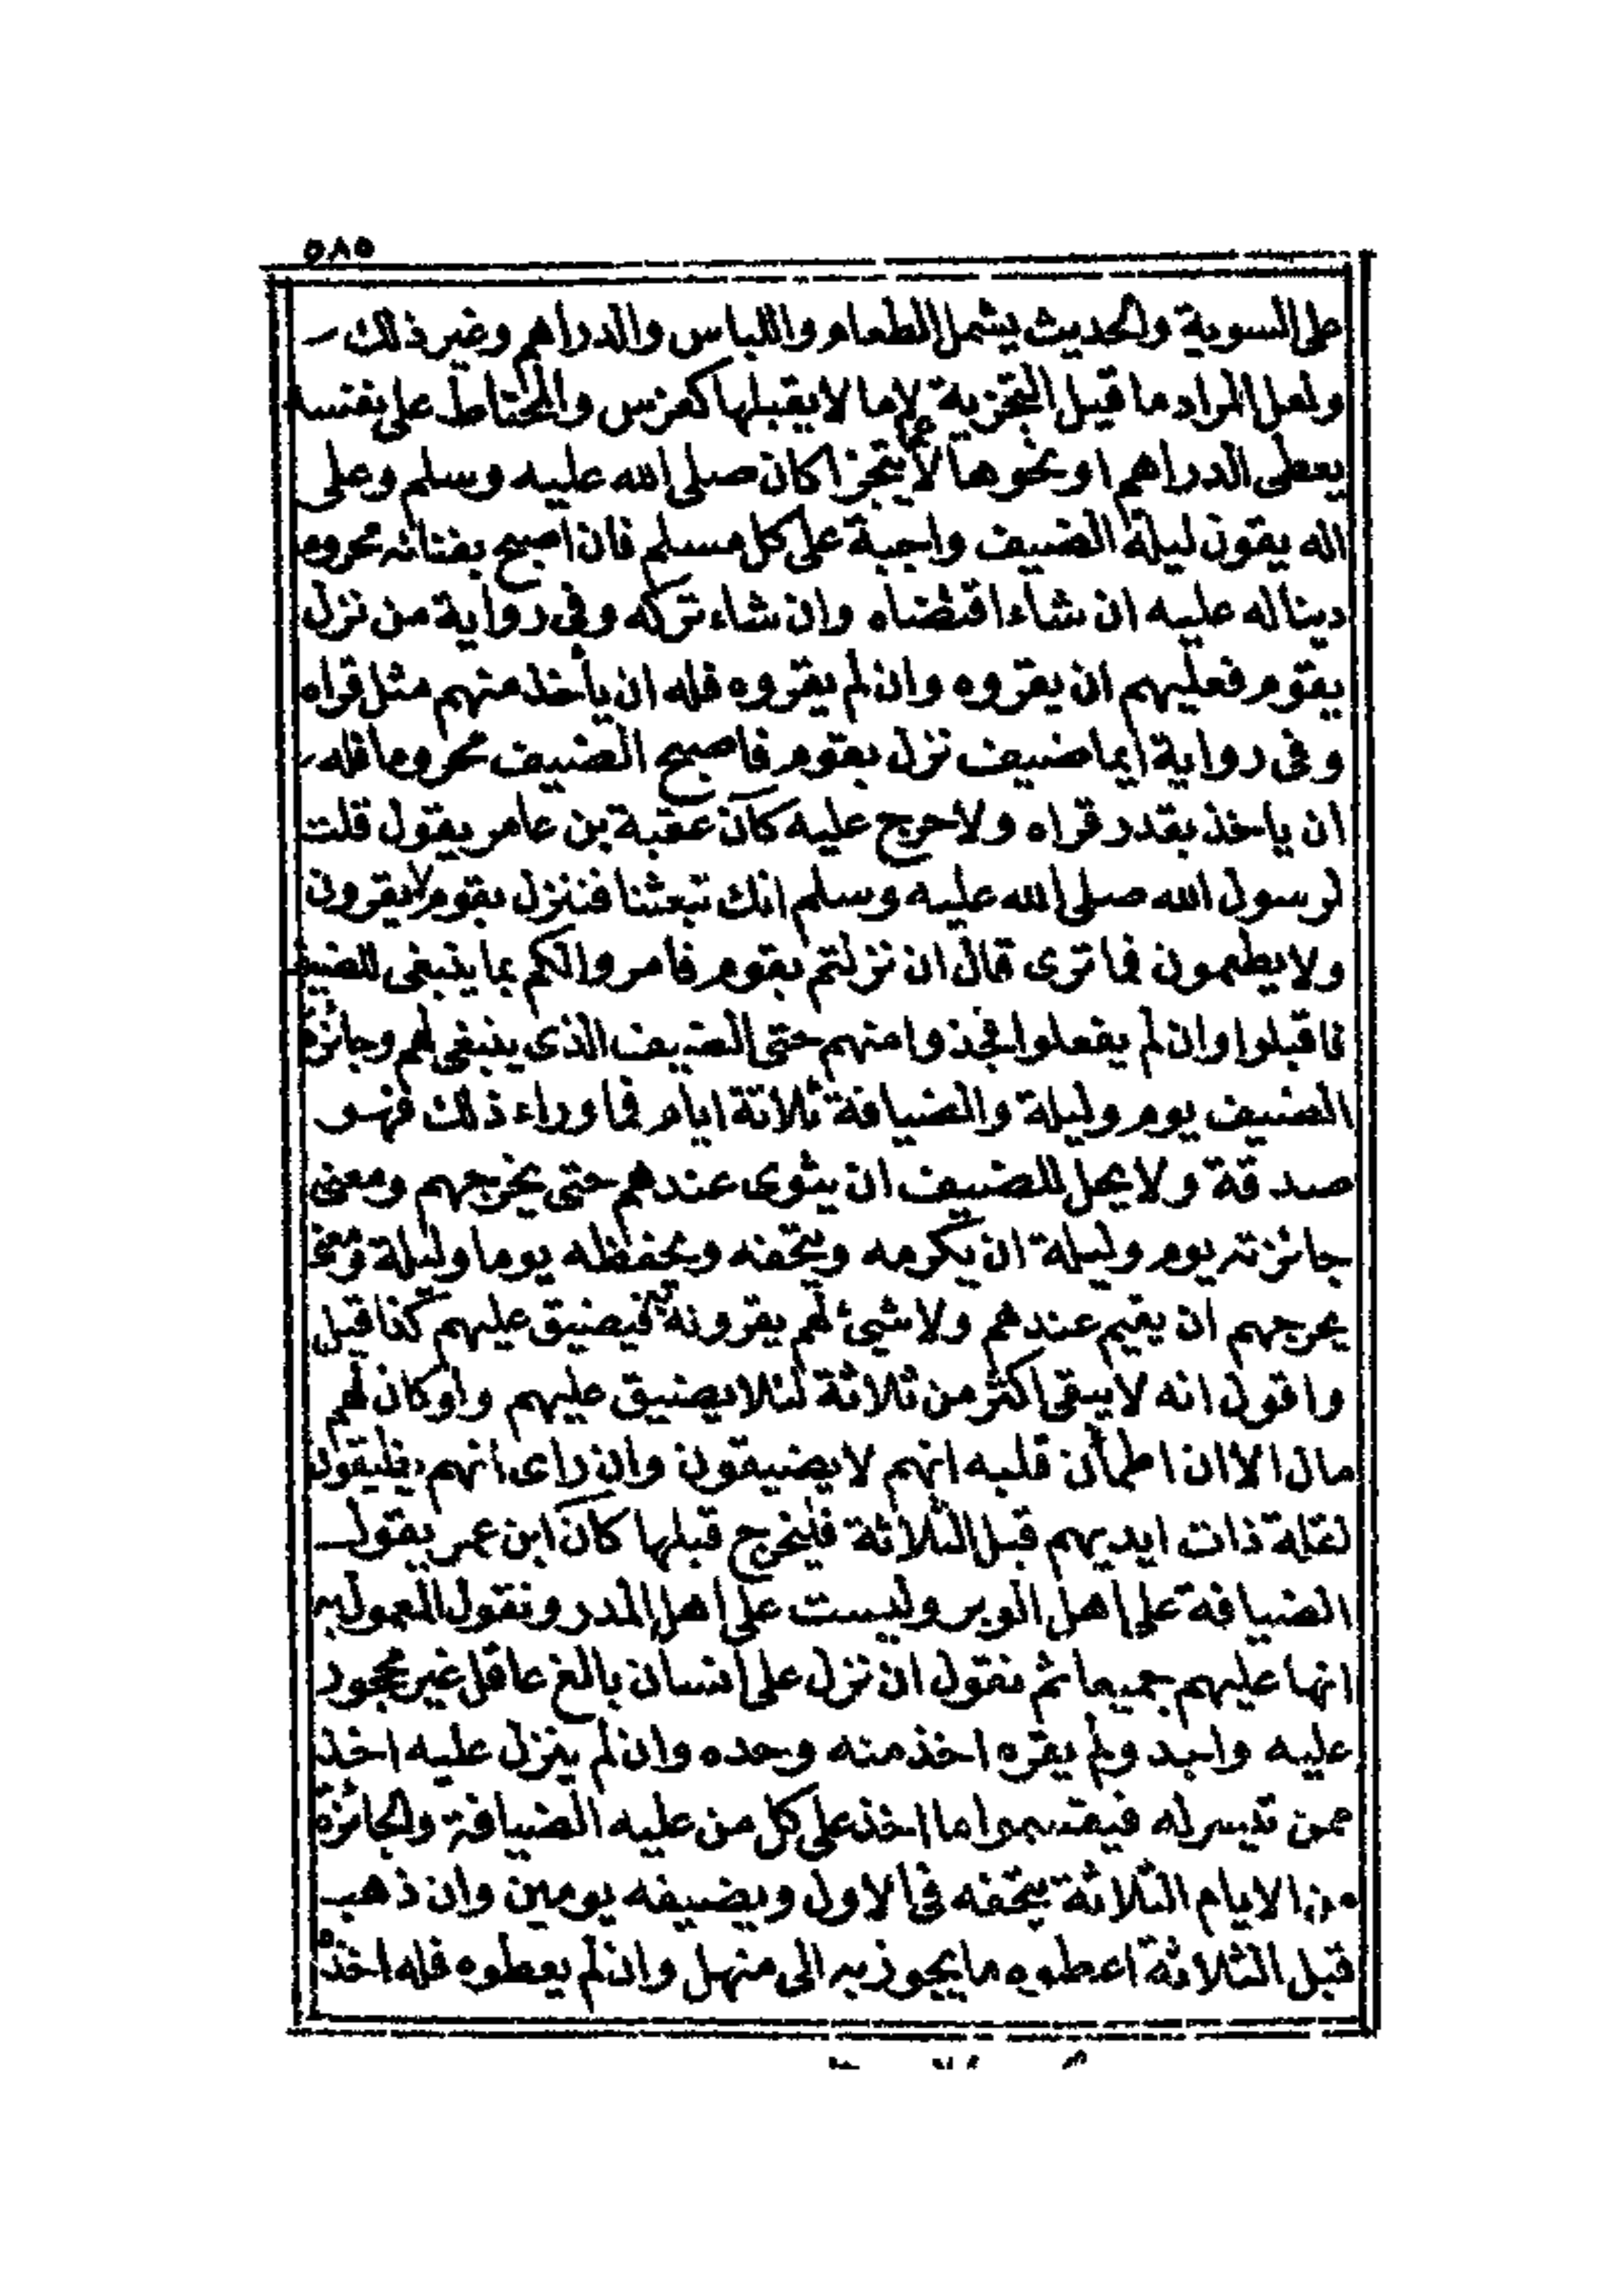 ٥٨٥
على السوية والحديث يشمل الطعام واللباس والدراهم وغير ذلك
ولعل المراد ما قبل التجزية لا ما لا يقبلها كفرس والمحتاط على نفسه
يعطى الدراهم او نحوها عما لا يتجزا كان صلى الله عليه وسلم وعلى
اله يقون ليلة الضيف واجبة على كل مسلم فان اصبح بفنائه محروم
دينا له عليه ان شاء اقتضاه وان شاء تركه وفى رواية من نزل
بقوم فعليهم ان يقروه وان لم يقروه فله ان يأخذ منهم مثل قراه
وفى رواية ايما ضيف نزل بقوم فاصبح الضيف محروما فله
ان ياخذ بقدر قراه ولا حرج عليه كان عقبة بن عامر يقول قلت
لرسول الله صلى الله عليه وسلم انك تبعثنا فننزل بقوم لا يقرون
ولا يطعمون فما ترى قال ان نزلتم بقوم فامروا لكم بما ينبغى للضيف
فاقبلوا وان لم يفعلوا فخذوا منهم حتى الضيف الذى ينبغى لهم وجائزة
الضيف يوم وليلة والضيافة ثلاثة ايام فما وراء ذلك فهو
صدقة ولا يحل للضيف ان يثوى عندهم حتى يخرجهم ومعنى
جائزته يوم وليلة ان يكرمه ويتحفه ويحفظه يوما وليلة ومعنى
يحرجهم ان يقيم عندهم ولا شئ لهم يقرونه به فيضيق عليهم كذا قيل
واقول انه لا يبقى اكثر من ثلاثة لئلا يضيق عليهم ولو كان لهم
مال الا ان اطمأن قلبه انهم لا يضيقون وان راى انهم يضيقون
لقلة ذات ايديهم قبل الثلاثة فليخرج قبلها كان ابن عمر يقول
الضيافة على اهل الوبر وليست على اهل المدر ونقول المعمول به
انها عليهم جميعا ثم نقول ان نزل على انسان بالغ عاقل غير محجور
عليه واجد ولم يقره اخذ منه وحده وان لم ينزل عليه اخذ
ممن تيسر له فيقتسموا ما اخذ على كل من عليه الضيافة والجائزة
من الايام الثلاثة يتحفه فى الاول ويضيفه يومين وان ذهب
قبل الثلاثة اعطوه ما يجوز به الى منهل وان لم يعطوه فله اخذه